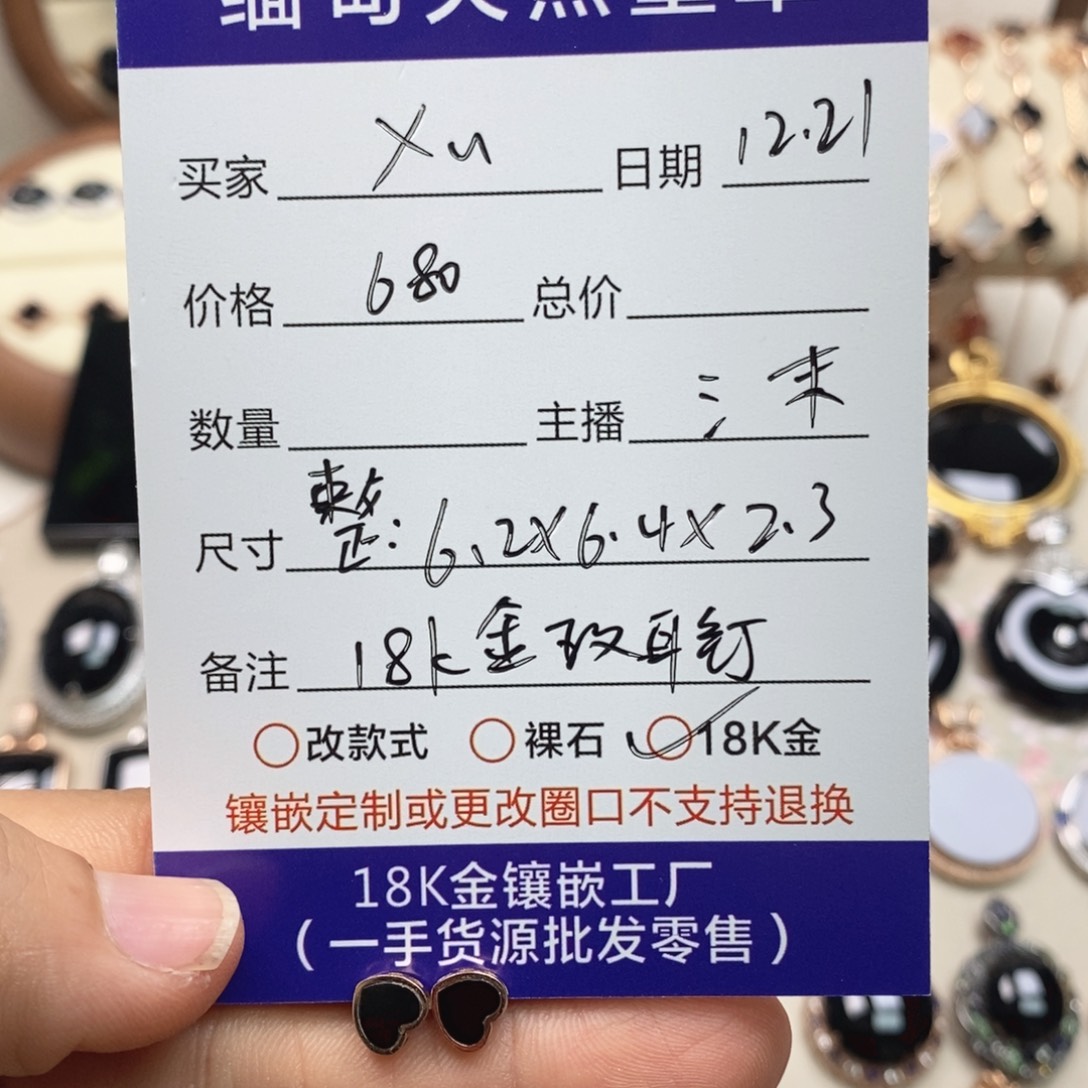 买家 Xu 日期 12.21
价格 680 总价
数量 主播
尺寸 整: 6.2X6.4X2.3
备注 18k金玫耳钉
改款式 裸石 18K金
镶嵌定制或更改圈口不支持退换
18K金镶嵌工厂
(一手货源批发零售)